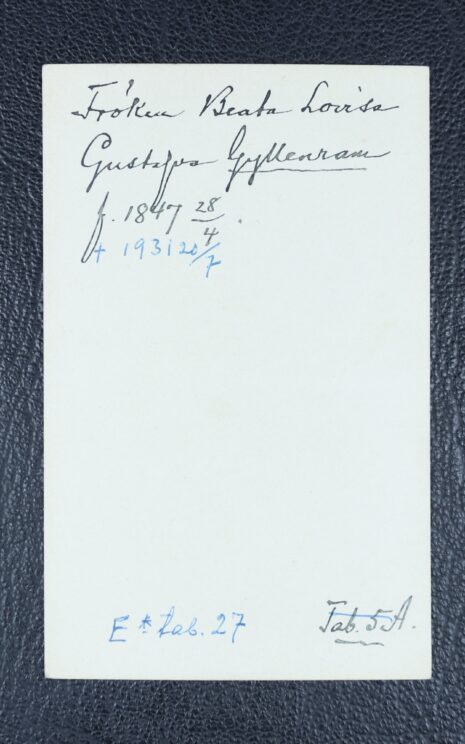 Fröken Beata Lovisa
Gustafva Gyllenram
f. 1847 28/4.
+ 1931 20/7
E* tab. 27
Tab. 5A.